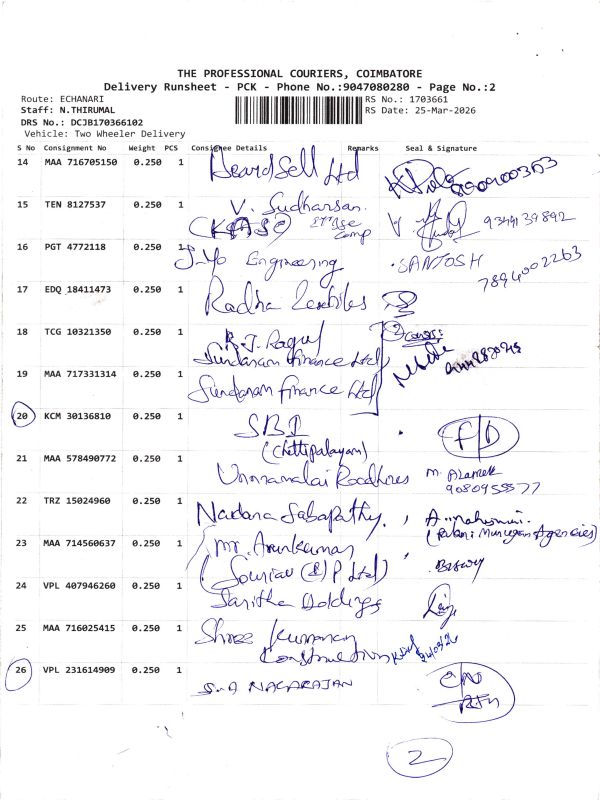 THE PROFESSIONAL COURIERS, COIMBATORE
Delivery Runsheet - PCK - Phone No.:9047080280 - Page No.:2
Route: ECHANARI
Staff: N.THIRUMAL
DRS No.: DCJB170366102
Vehicle: Two Wheeler Delivery
RS No.: 1703661
RS Date: 25-Mar-2026
S No Consignment No Weight PCS Consignee Details Remarks Seal & Signature
14 MAA 716705150 0.250 1 Beardsell Ltd
15 TEN 8127537 0.250 1 V. Sudharsan 9344139892
CKASC
16 PGT 4772118 0.250 1 J-Yo Engineering SANTOSH
7894002263
17 EDQ 18411473 0.250 1 Radha Textiles
18 TCG 10321350 0.250 1 R.T. Ragul
Sundaram Finance Ltd
19 MAA 717331314 0.250 1 Sundaram Finance Ltd
20 KCM 30136810 0.250 1 SBI F/D
(Chettipalayam)
21 MAA 578490772 0.250 1 Unnamalai
9080955577
22 TRZ 15024960 0.250 1 Nadana Sabapathy
(Palani Murugan Agencies)
23 MAA 714560637 0.250 1 Mr. Arunkumar
(P Ltd)
24 VPL 407946260 0.250 1 Saritha Holdings
25 MAA 716025415 0.250 1 Shree Kumaran
Constructions
26 VPL 231614909 0.250 1 S.A NAGARAJAN
2